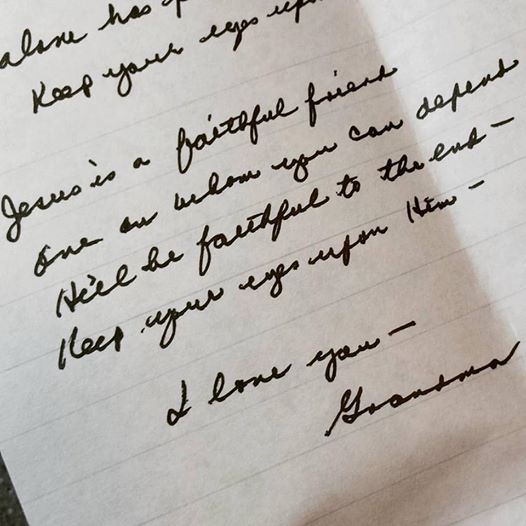 alone has
Keep your eyes upon
Jesus is a faithful friend
One on whom you can depend
He'll be faithful to the end —
Keep your eyes upon Him —
I love you —
Grandma